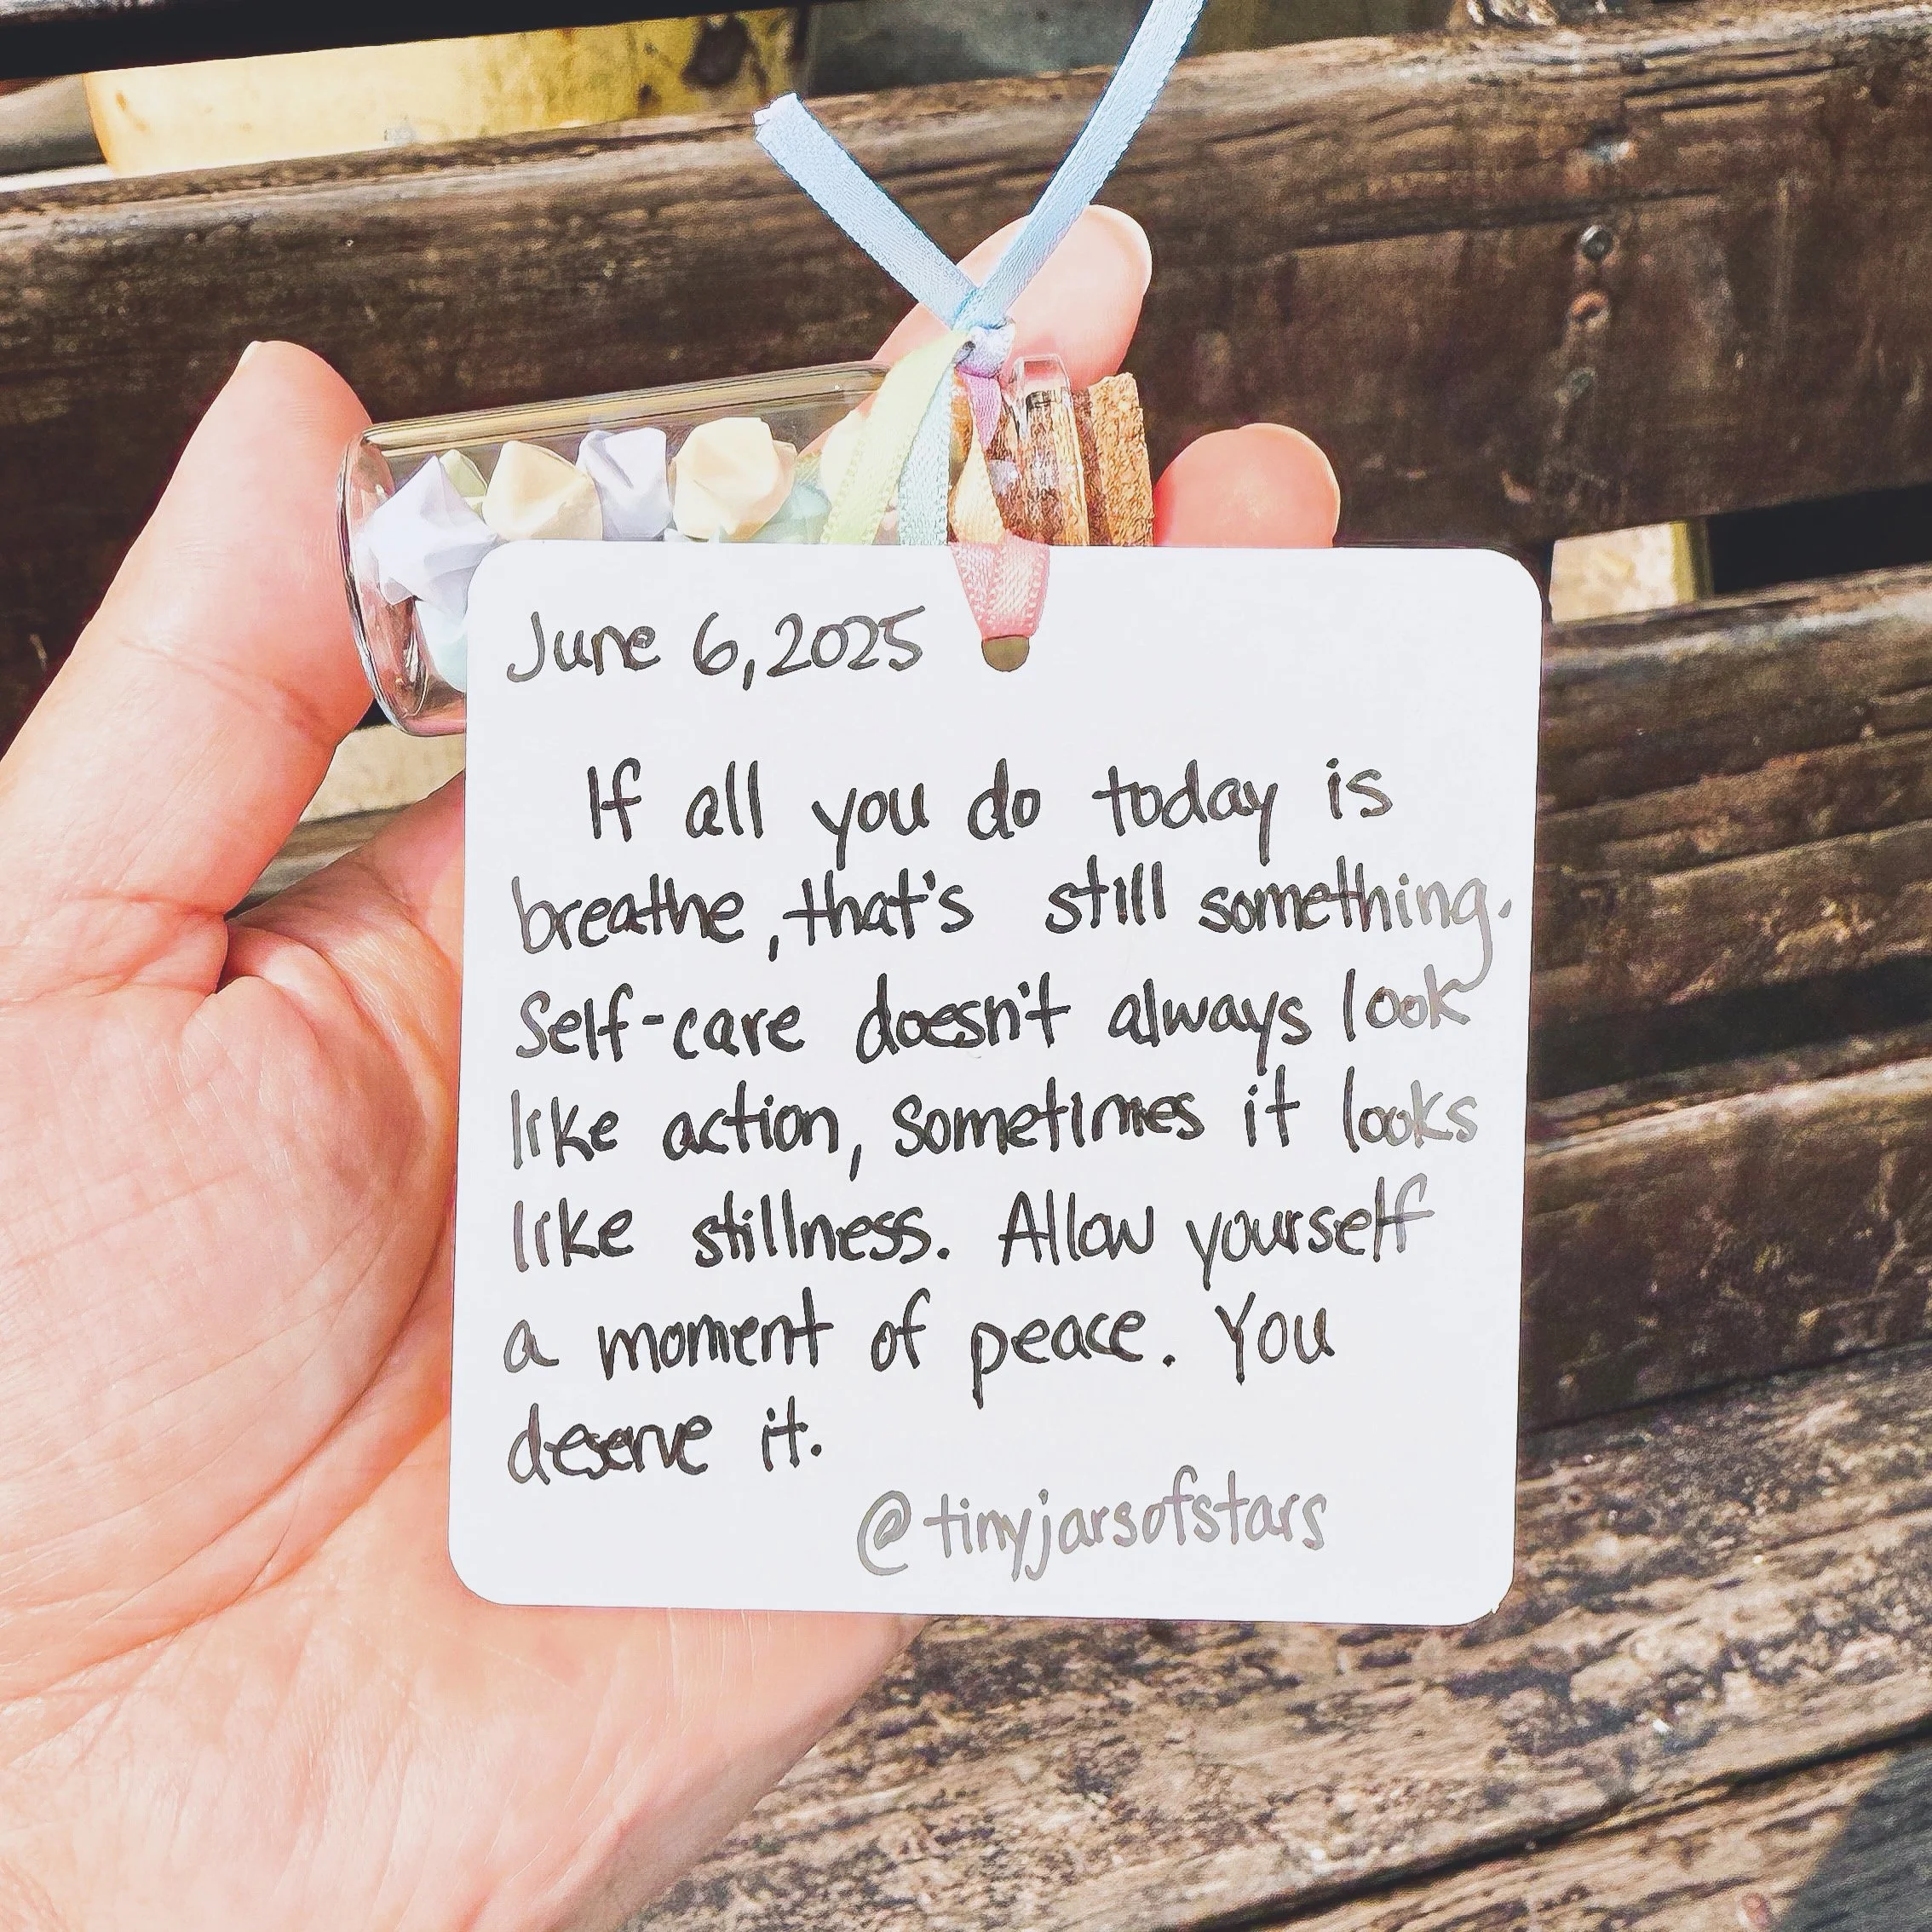 June 6, 2025
If all you do today is
breathe, that's still something.
Self-care doesn't always look
like action, sometimes it looks
like stillness. Allow yourself
a moment of peace. You
deserve it.
@tinyjarsofstars